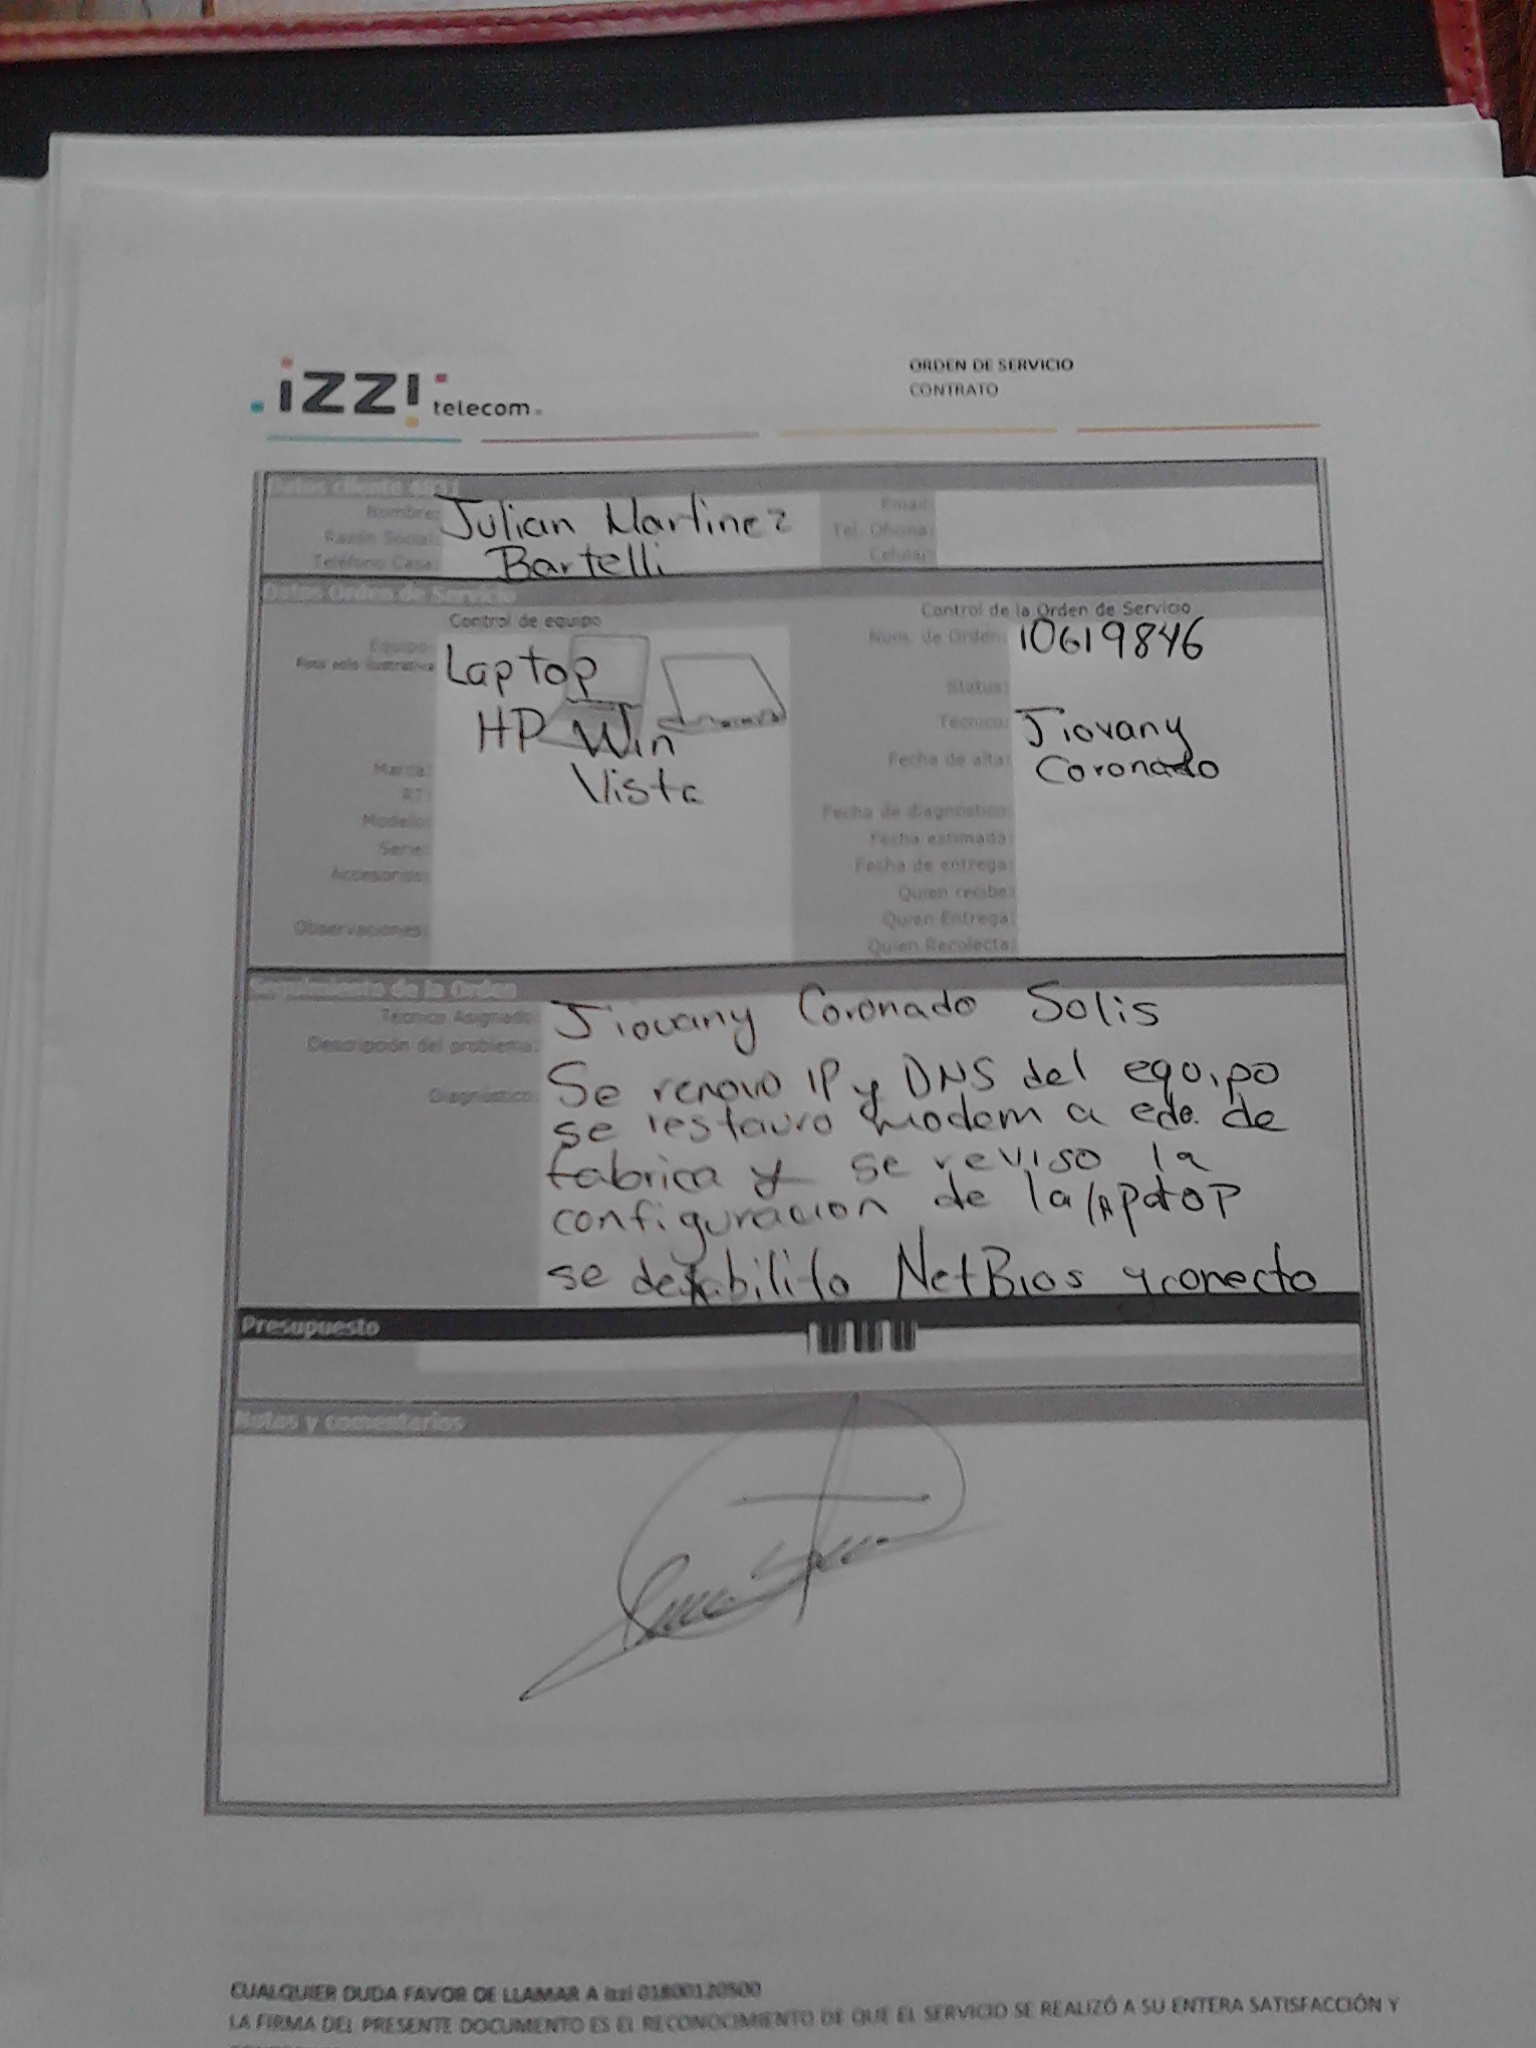 izzi telecom
ORDEN DE SERVICIO
CONTRATO
Datos cliente 4031
Nombre: Julian Martinez
Razón Social:
Bartelli
Teléfono Casa:
Email:
Tel. Oficina:
Celular:
Datos Orden de Servicio
Control de equipo
Equipo:
foto solo ilustrativa
Laptop
HP Win
Vista
Marca:
RT:
Modelo:
Serie:
Accesorios:
Observaciones:
Control de la Orden de Servicio
Num. de Orden: 10619846
Status:
Técnico: Jiovany
Coronado
Fecha de alta:
Fecha de diagnóstico:
Fecha estimada:
Fecha de entrega:
Quien recibe:
Quien Entrega:
Quien Recolecta:
Seguimiento de la Orden
Técnico Asignado: Jiovany Coronado Solis
Descripción del problema:
Diagnóstico:
Se renovo IP y DNS del equipo
se restauro modem a edo. de
fabrica y se reviso la
configuracion de la laptop
se deshabilito NetBios y conecto
Presupuesto
Notas y comentarios
CUALQUIER DUDA FAVOR DE LLAMAR A izzi 01800120500
LA FIRMA DEL PRESENTE DOCUMENTO ES EL RECONOCIMIENTO DE QUE EL SERVICIO SE REALIZÓ A SU ENTERA SATISFACCIÓN Y